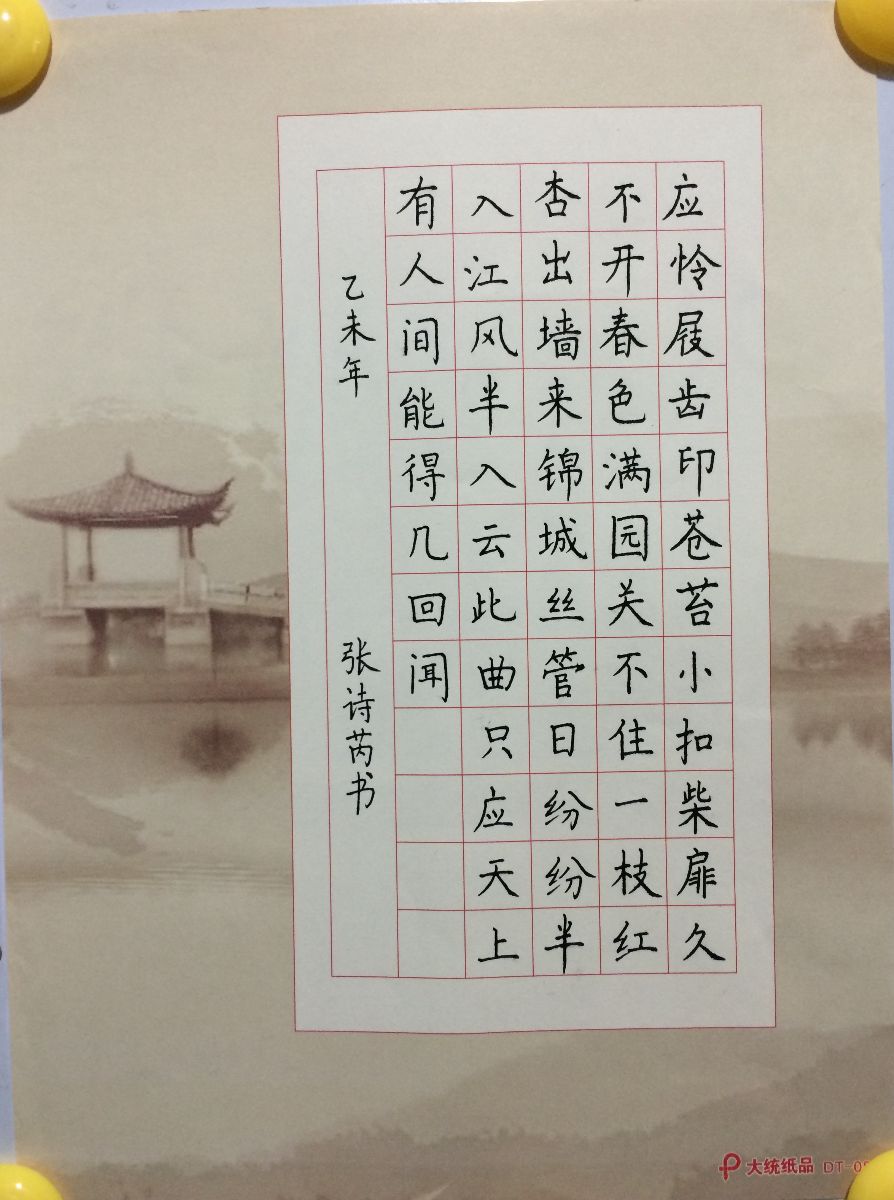 应怜屐齿印苍苔小扣柴扉久
不开春色满园关不住一枝红
杏出墙来锦城丝管日纷纷半
入江风半入云此曲只应天上
有人间能得几回闻
乙未年 张诗芮书
大统纸品 DT-0